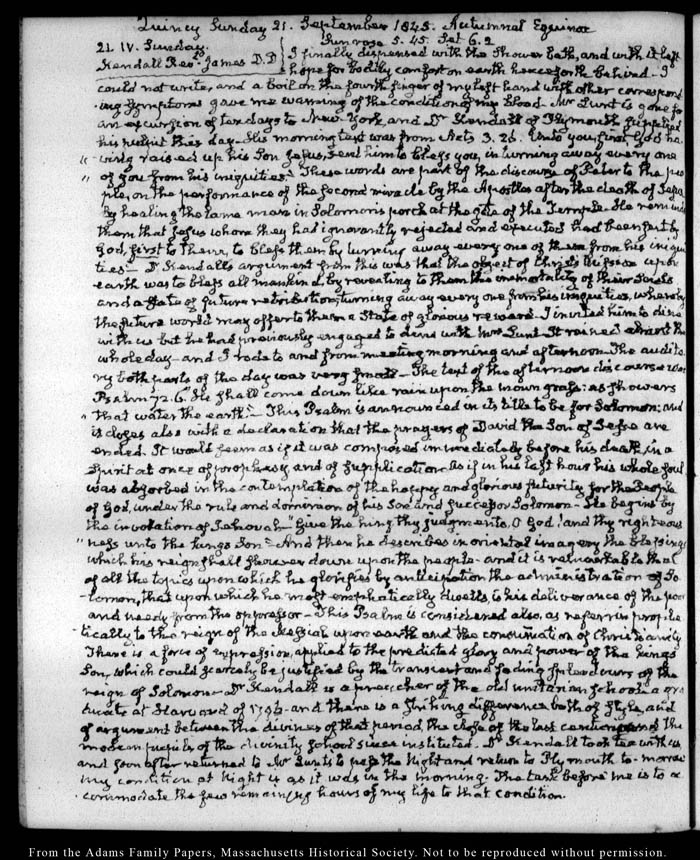 Quincy Sunday 21. September 1845. Autumnal Equinox
21. IV. Sunday. Sun rose 5.45. Set 6.2
Kendall Rev. James D.D I finally dispensed with the Shower bath, and with it left
hope for bodily comfort on earth henceforth behind. I
could not write, and a boil on the fourth finger of my left hand with other correspond
ing symptoms gave me warning of the condition of my blood. Mr Lunt is gone for
an excursion of ten days to New York, and Dr Kendall of Plymouth supplied
his pulpit this day. His morning text was from Acts 3. 26. Unto you first, God ha-
" ving raised up his Son Jesus, sent him to bless you, in turning away every one
" of you from his iniquities." These words are part of the discourse of Peter to the peo
ple, on the performance of the second miracle by the Apostles after the death of Jesus
By healing the lame man in Solomon's porch at the gate of the Temple. He reminds
them that Jesus whom they had ignorantly rejected and executed had been sent by
God, first to them, to bless them by turning away every one of them from his iniqui
ties— Dr Kendall's argument from this was that the object of Christ's mission upon
earth was to bless all mankind, by revealing to them the immortality of their souls
and a state of future retribution, turning away every one from his iniquities, whereby
the future world may offer to them a State of glorious reward. I invited him to dine
with us but he had previously engaged to dine with Mrs Lunt. It rained almost the
whole day— and I rode to and from meeting morning and afternoon. The audito
ry both parts of the day was very small— The text of the afternoon discourse was
Psalm 72. 6. He shall come down like rain upon the mown grass: as showers
" that water the earth."— This Psalm is announced in its title to be for Solomon; and
it closes also with a declaration that the prayers of David the Son of Jesse are
ended. It would seem as if it was composed immediately before his death, in a
spirit at once of prophesy, and of supplication as if in his last hour his whole soul
was absorbed in the contemplation of the happy and glorious futurity for the People
of God, under the rule and dominion of his Son and successor Solomon— He begins by
the invocation of Jehovah— "Give the king thy judgments, O God! and thy righteous
" ness unto the king's Son"— And then he describes in oriental imagery the blessings
which his reign shall shower down upon the people— and it is remarkable that
of all the topics upon which he glorifies by anticipation the administration of So-
lomon, that upon which he most emphatically dwells, is his deliverance of the poor
and needy from the oppressor— This Psalm is considered also, as referring prophe
tically to the reign of the Messiah upon earth and the consummation of Christianity
There is a force of expression, applied to the predicted glory and power of the king's
Son, which could scarcely be justified by the transient and fading splendours of the
reign of Solomon— Dr Kendall is a preacher of the old unitarian school— a gra
duate at Harvard of 1796— and there is a striking difference both of style, and
of argument between the divines of that period, the close of the last century and the
modern pupils of the divinity school since instituted. Dr Kendall took tea with us
and soon after returned to Mr Lunt's to pass the Night and return to Plymouth to-morrow
My condition at Night is as it was in the morning. The task before me is to a
ccommodate the few remaining hours of my life to that condition.
From the Adams Family Papers, Massachusetts Historical Society. Not to be reproduced without permission.